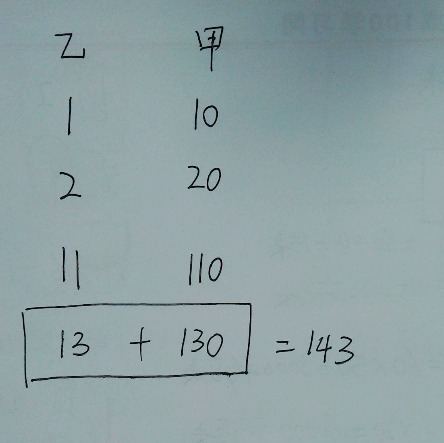 乙 甲
1 10
2 20
11 110
13 + 130 = 143